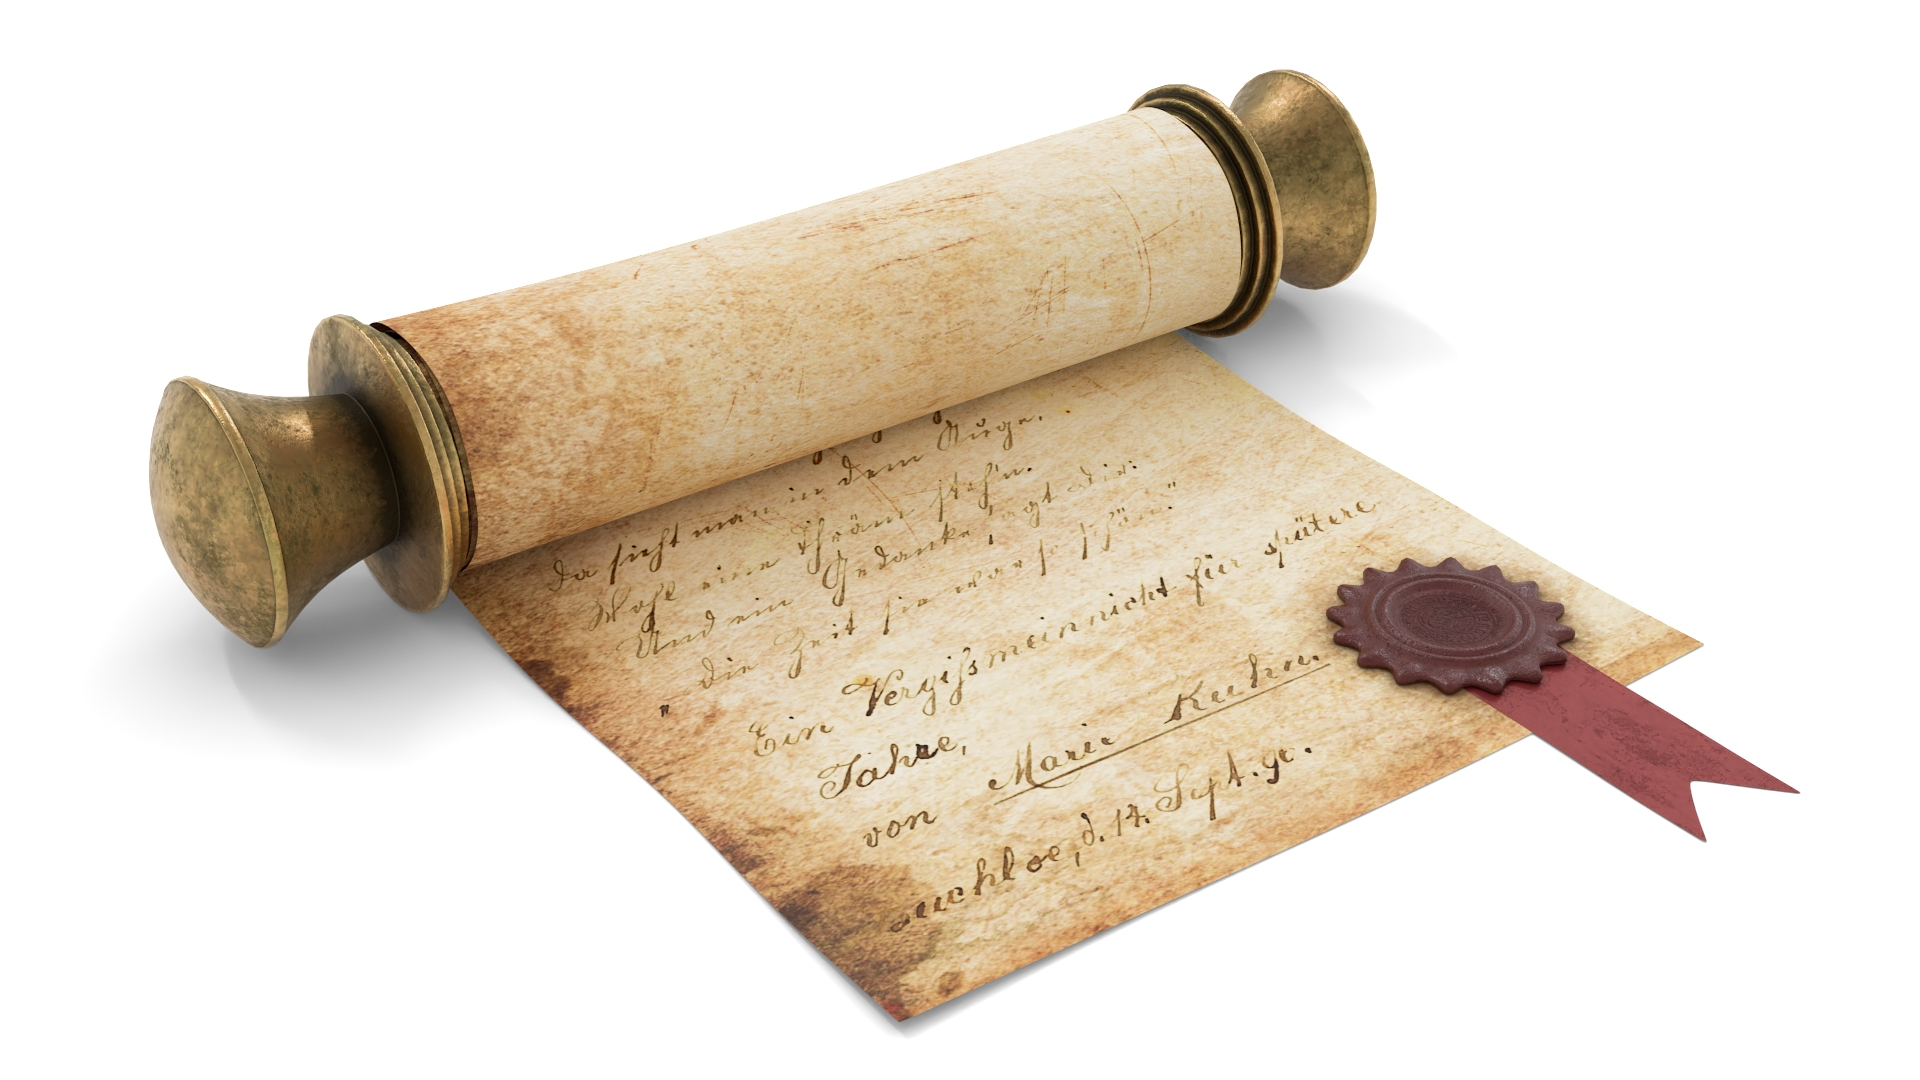 da sieht man in dem Auge,
Wohl eine Thräne steh'n.
Und ein Gedanke, sagt dir:
"die Zeit sie war so schön."
Ein Vergißmeinnicht für spätere
Jahre,
von Marie Kuhn.
d. 14. Sept. 90.